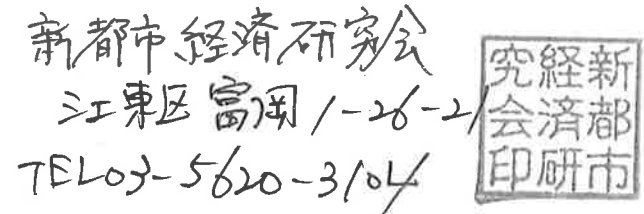 新都市経済研究会
江東区富岡1-26-21
TEL03-5620-3104
新都市
経済研
究会印